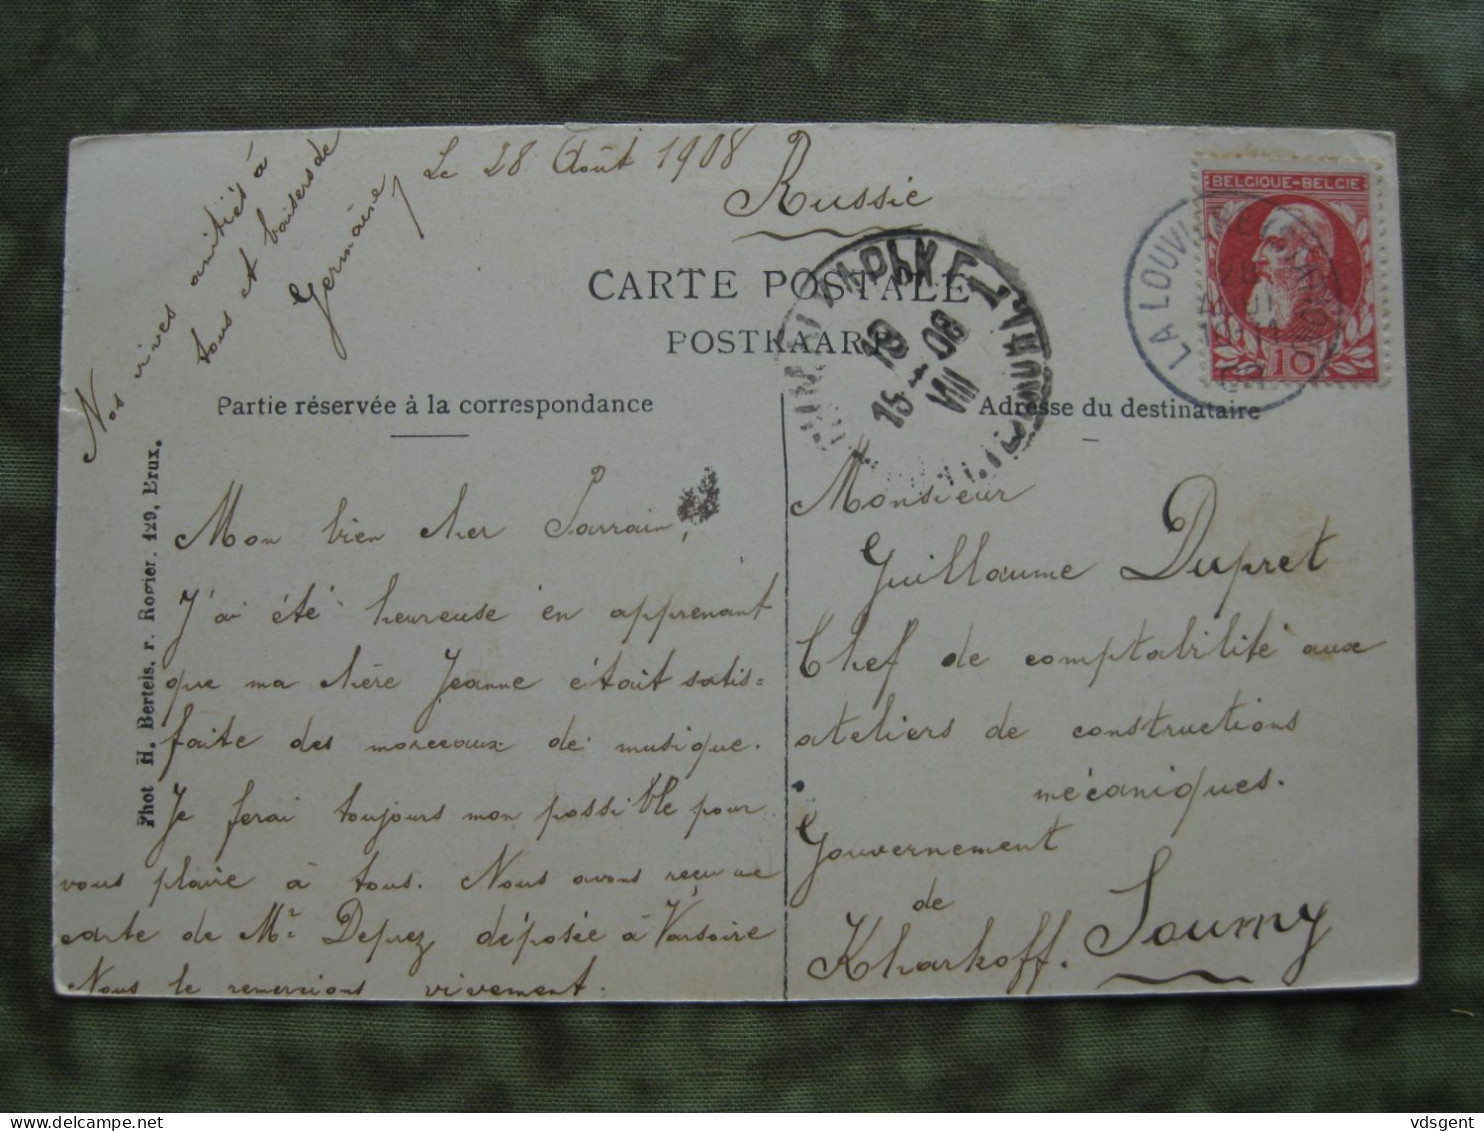 Le 28 Août 1908
Russie
Nos vives amitiés à
tous et baisers de
Germaine,
BELGIQUE-BELGIE
10
LA LOUVI
28
CARTE POSTALE
POSTKAART
18
15 - 08
VIII
Partie réservée à la correspondance
Adresse du destinataire
Phot H. Bertels, r. Rogier, 129, Brux.
Mon bien cher Parrain,
J'ai été heureuse en apprenant
que ma chère Jeanne était satis=
faite des morceaux de musique.
Je ferai toujours mon possible pour
vous plaire à tous. Nous avons reçu une
carte de Mr Deprez, déposée à Varsovie
Nous le remercions vivement.
Monsieur
Guillaume Dupret
Chef de comptabilité aux
ateliers de constructions
mécaniques.
Gouvernement
de
Kharkoff. Soumy
vdsgent